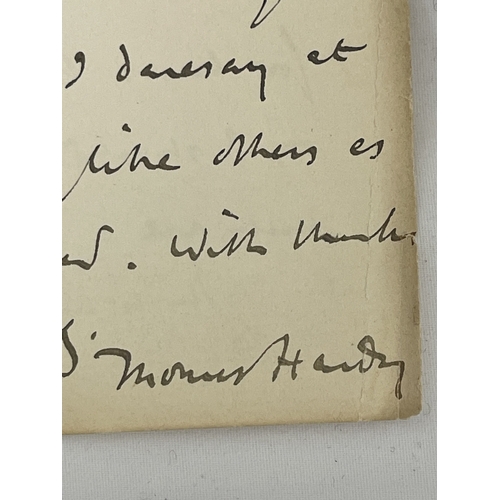 I daresay at
like others as
With thanks
Thomas Hardy